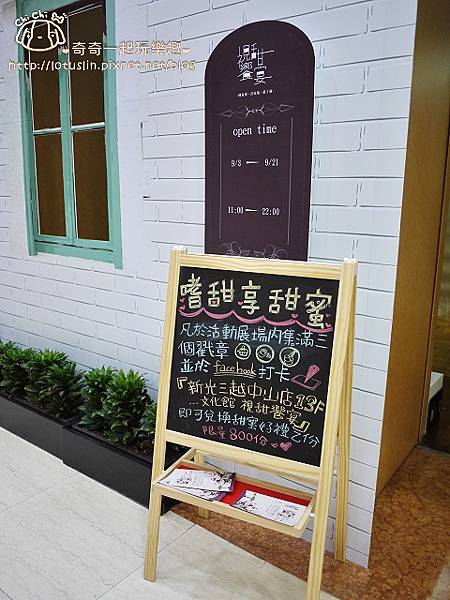 Chi Chi
奇奇一起玩樂趣
http://lotuslin.pixnet.net/blog
視甜饗宴
open time
9/3 — 9/21
11:00 — 22:00
嗜甜享甜蜜
凡於活動展場內集滿三
個戳章
並於facebook打卡
『新光三越中山店13F
...文化館 視甜饗宴』
即可兌換甜蜜好禮乙份
限量800份